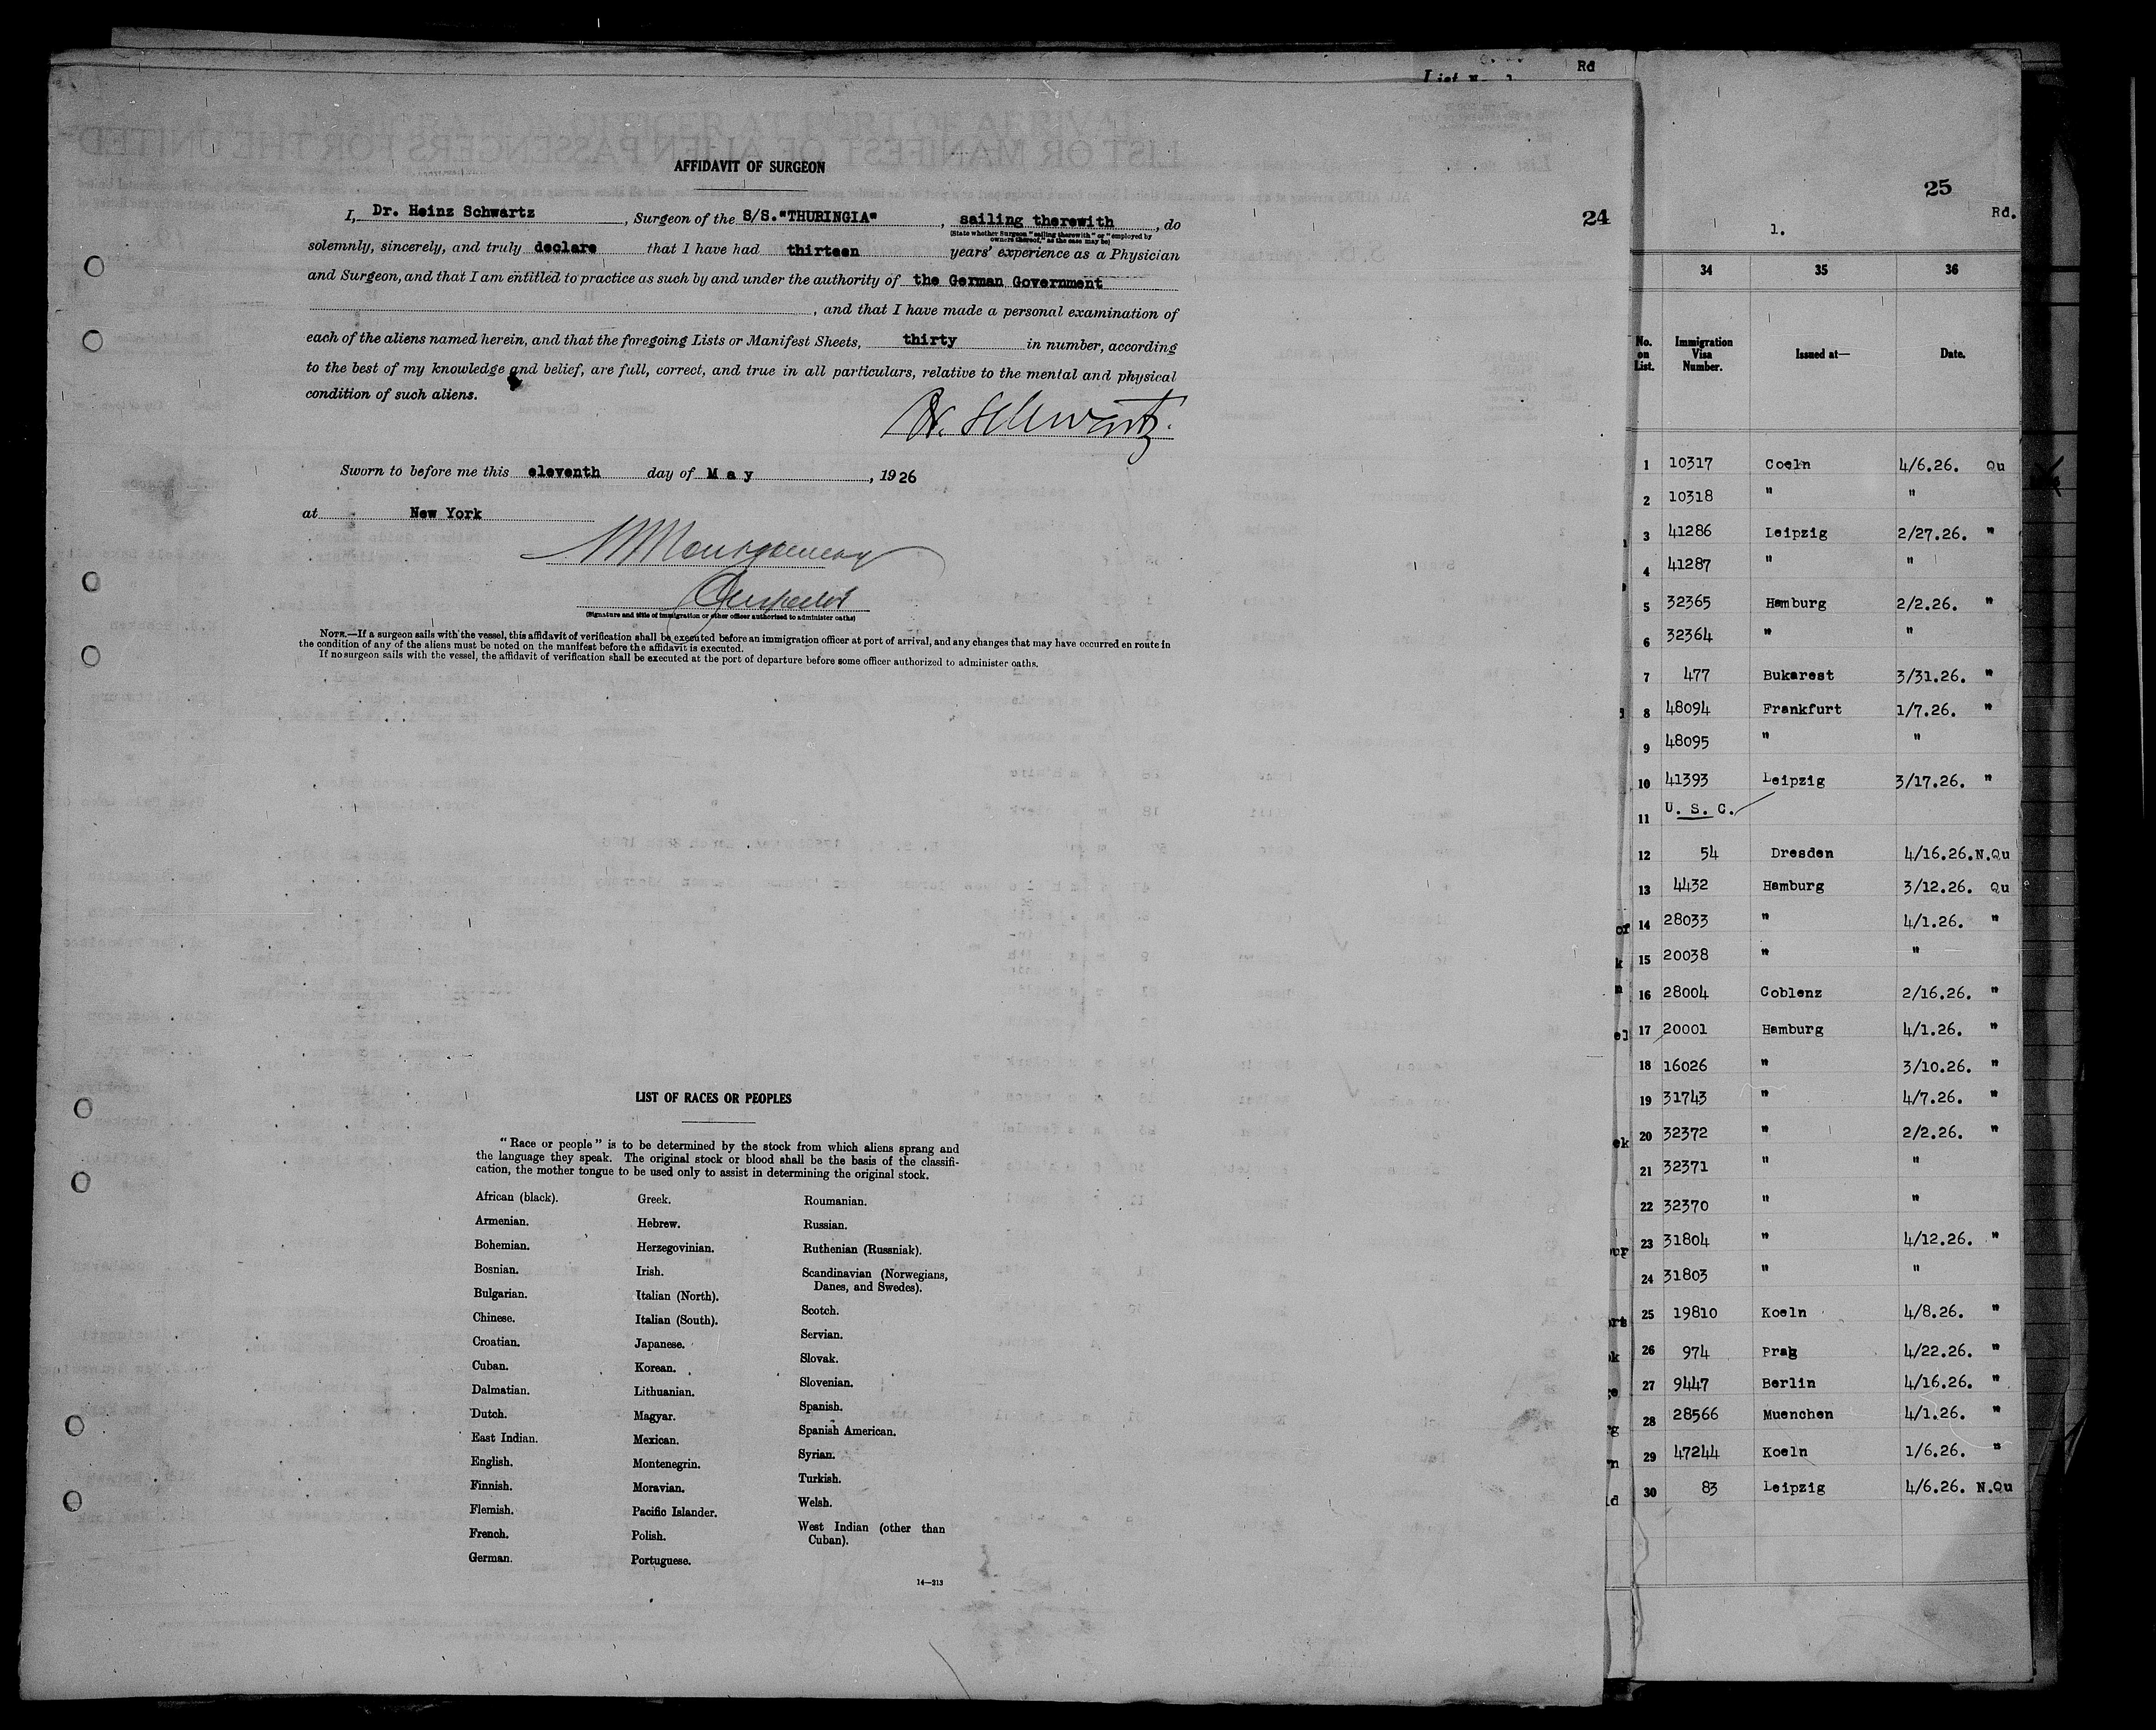 Rd
24
AFFIDAVIT OF SURGEON
I, Dr. Heinz Schwartz, Surgeon of the S/S."THURINGIA", sailing therewith, do
(State whether Surgeon "sailing therewith" or "employed by
owners thereof," as the case may be)
solemnly, sincerely, and truly declare that I have had thirteen years' experience as a Physician
and Surgeon, and that I am entitled to practice as such by and under the authority of the German Government
, and that I have made a personal examination of
each of the aliens named herein, and that the foregoing Lists or Manifest Sheets, thirty in number, according
to the best of my knowledge and belief, are full, correct, and true in all particulars, relative to the mental and physical
condition of such aliens.
Dr. Schwartz.
Sworn to before me this eleventh day of May, 1926
at New York
Montgomery
Inspector
(Signature and title of immigration or other officer authorized to administer oaths)
NOTE.—If a surgeon sails with the vessel, this affidavit of verification shall be executed before an immigration officer at port of arrival, and any changes that may have occurred en route in
the condition of any of the aliens must be noted on the manifest before the affidavit is executed.
If no surgeon sails with the vessel, the affidavit of verification shall be executed at the port of departure before some officer authorized to administer oaths.
LIST OF RACES OR PEOPLES
"Race or people" is to be determined by the stock from which aliens sprang and
the language they speak. The original stock or blood shall be the basis of the classifi-
cation, the mother tongue to be used only to assist in determining the original stock.
African (black).
Armenian.
Bohemian.
Bosnian.
Bulgarian.
Chinese.
Croatian.
Cuban.
Dalmatian.
Dutch.
East Indian.
English.
Finnish.
Flemish.
French.
German.
Greek.
Hebrew.
Herzegovinian.
Irish.
Italian (North).
Italian (South).
Japanese.
Korean.
Lithuanian.
Magyar.
Mexican.
Montenegrin.
Moravian.
Pacific Islander.
Polish.
Portuguese.
Roumanian.
Russian.
Ruthenian (Russniak).
Scandinavian (Norwegians,
Danes, and Swedes).
Scotch.
Servian.
Slovak.
Slovenian.
Spanish.
Spanish American.
Syrian.
Turkish.
Welsh.
West Indian (other than
Cuban).
14—213
25
Rd.
1.
34 35 36
No. on List. Immigration Visa Number. Issued at— Date.
1 10317 Coeln 4/6.26. Qu
2 10318 " "
3 41286 Leipzig 2/27.26. "
4 41287 " "
5 32365 Hamburg 2/2.26. "
6 32364 " "
7 477 Bukarest 3/31.26. "
8 48094 Frankfurt 1/7.26. "
9 48095 " "
10 41393 Leipzig 3/17.26. "
11 U. S. C.
12 54 Dresden 4/16.26. N.Qu
13 4432 Hamburg 3/12.26. Qu
14 28033 " 4/1.26. "
15 20038 " "
16 28004 Coblenz 2/16.26. "
17 20001 Hamburg 4/1.26. "
18 16026 " 3/10.26. "
19 31743 " 4/7.26. "
20 32372 " 2/2.26. "
21 32371 " "
22 32370 " "
23 31804 " 4/12.26. "
24 31803 " "
25 19810 Koeln 4/8.26. "
26 974 Prag 4/22.26. "
27 9447 Berlin 4/16.26. "
28 28566 Muenchen 4/1.26. "
29 47244 Koeln 1/6.26. "
30 83 Leipzig 4/6.26. N.Qu